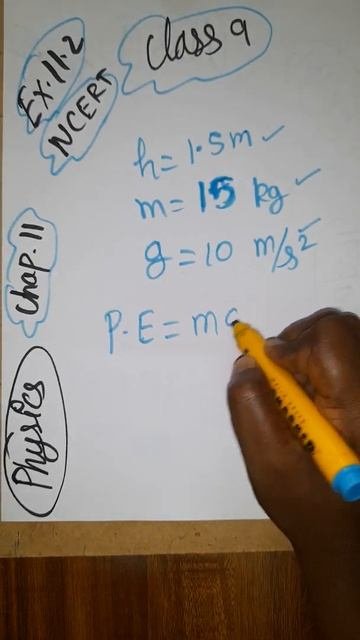 Ex. 11.2
NCERT
Class 9
h = 1.5m ✓
m = 15 kg ✓
g = 10 m/s²
Chap. 11
P.E = mg
Physics